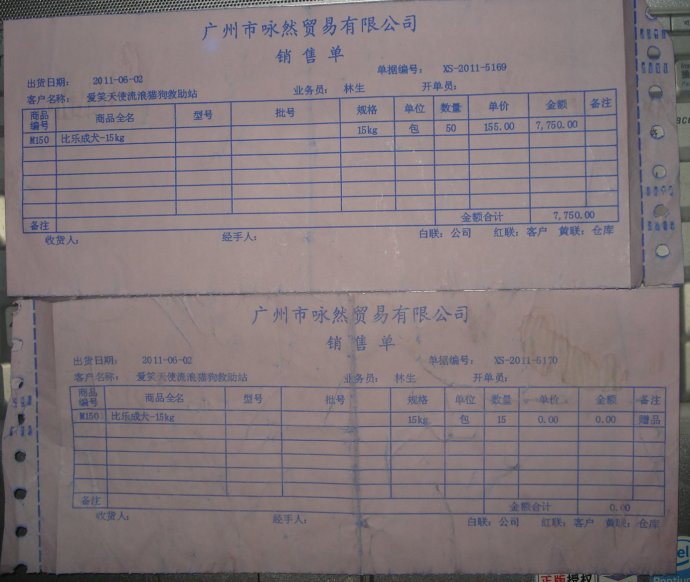 广州市咏然贸易有限公司
销售单
单据编号： XS-2011-5169
出货日期： 2011-06-02
客户名称： 爱笑天使流浪猫狗救助站 业务员： 林生 开单员：
商品编号 商品全名 型号 批号 规格 单位 数量 单价 金额 备注
M150 比乐成犬-15kg 15kg 包 50 155.00 7,750.00
备注 金额合计 7,750.00
收货人： 经手人： 白联：公司 红联：客户 黄联：仓库
广州市咏然贸易有限公司
销售单
出货日期： 2011-06-02 单据编号： XS-2011-5170
客户名称： 爱笑天使流浪猫狗救助站 业务员： 林生 开单员：
商品编号 商品全名 型号 批号 规格 单位 数量 单价 金额 备注
M150 比乐成犬-15kg 15kg 包 15 0.00 0.00 赠品
备注 金额合计 0.00
收货人： 经手人： 白联：公司 红联：客户 黄联：仓库
正版授权